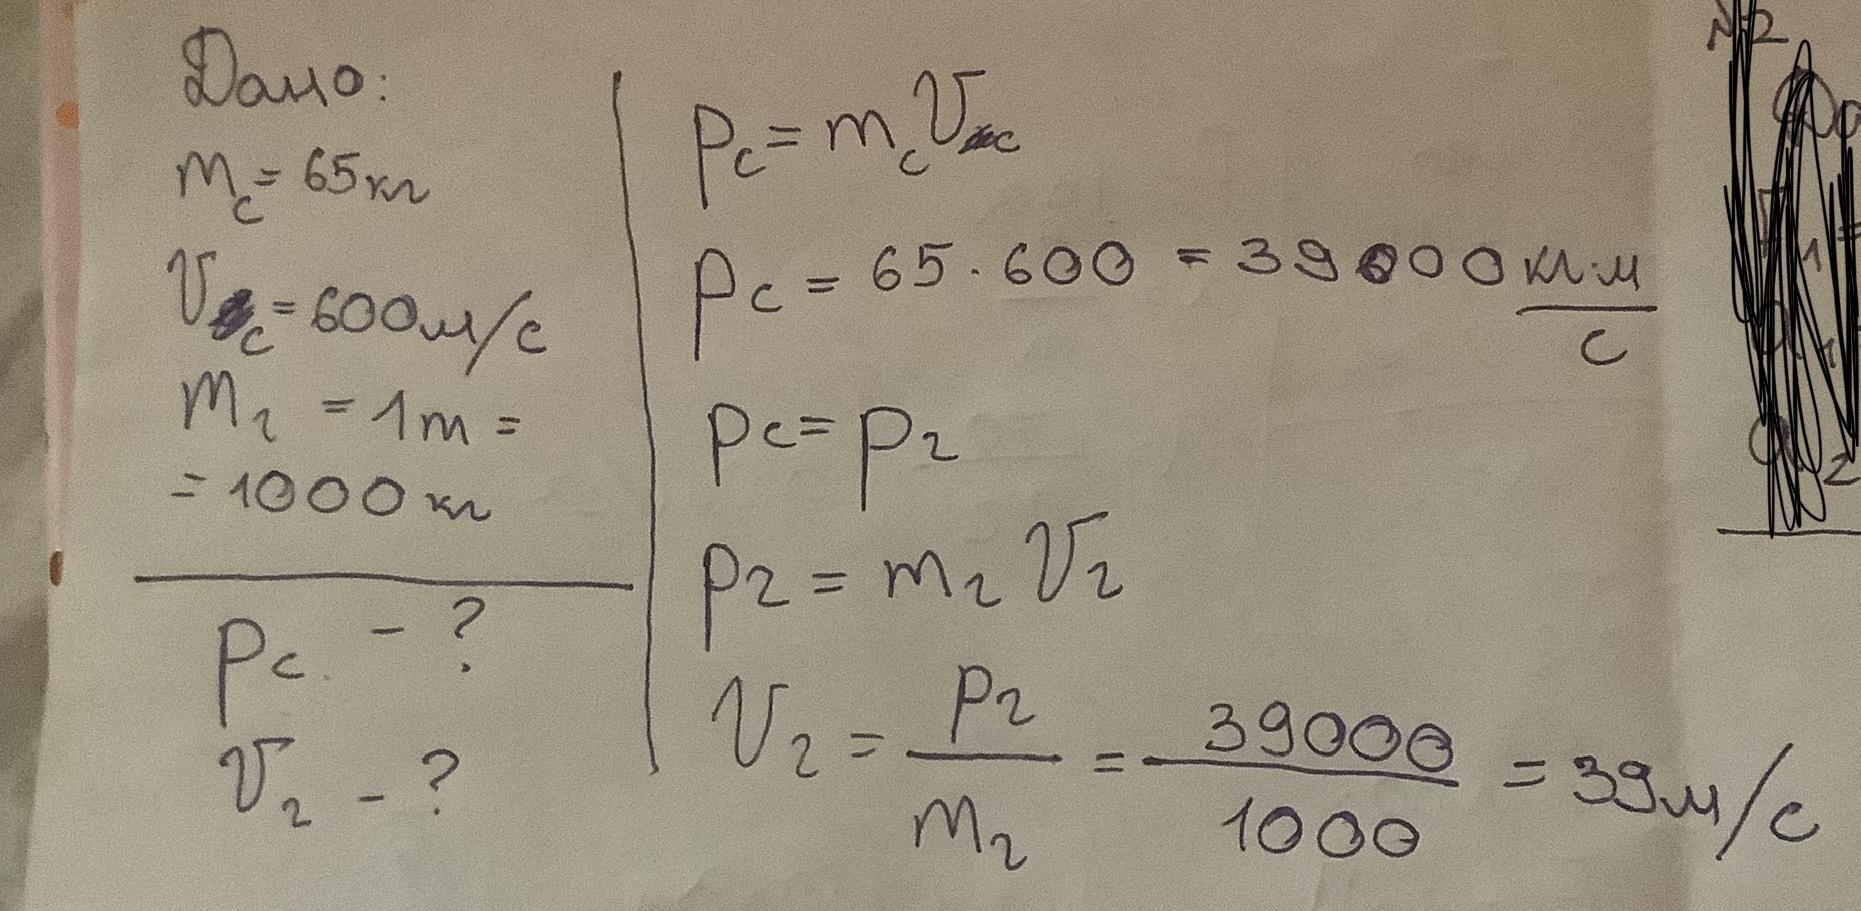 Дано:
m_c = 65 кг
V_c = 600 м/с
m_г = 1 т =
= 1000 кг
p_c - ?
V_г - ?
p_c = m_c V_c
p_c = 65 · 600 = 39000 кг·м/с
p_c = p_г
p_г = m_г V_г
V_г = p_г/m_г = 39000/1000 = 39 м/с
№2